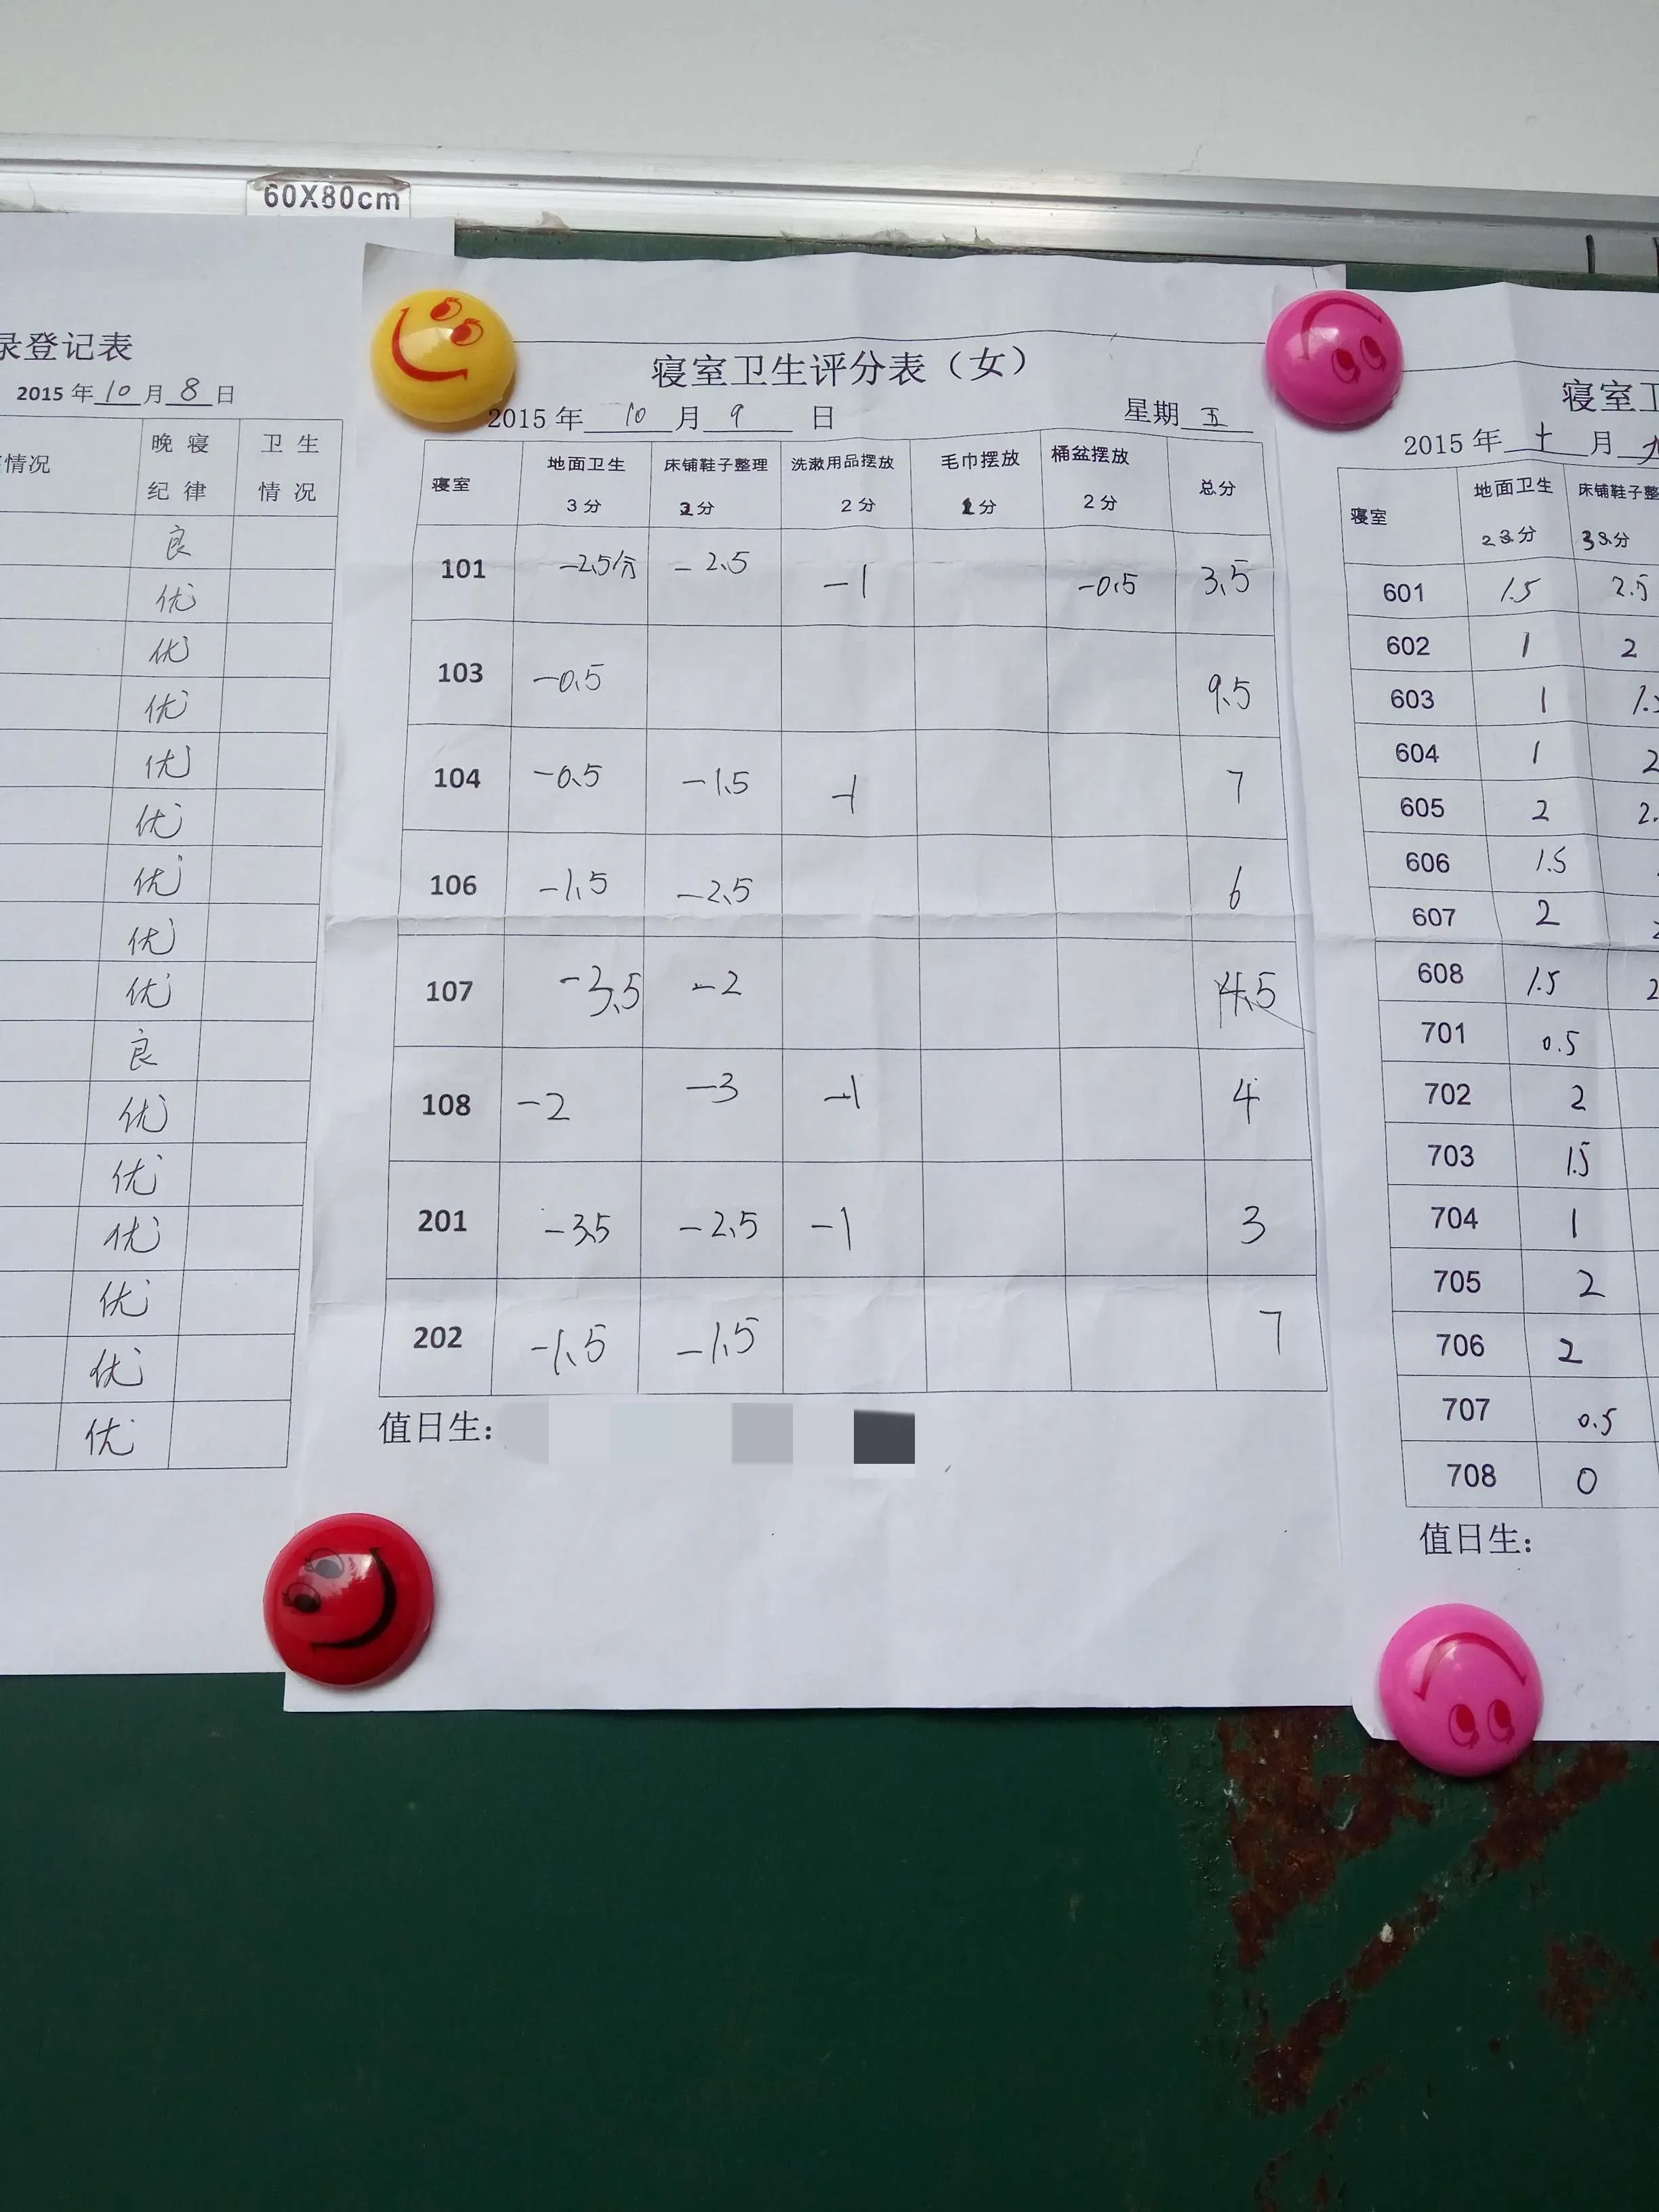 60X80cm
录登记表
2015年10月8日
情况 晚寝纪律 卫生情况
良
优
优
优
优
优
优
优
优
良
优
优
优
优
优
优
寝室卫生评分表（女）
2015年 10 月 9 日 星期 五
寝室 地面卫生 3分 床铺鞋子整理 分 洗漱用品摆放 2分 毛巾摆放 分 桶盆摆放 2分 总分
101 -2.5分 -2.5 -1 -0.5 3.5
103 -0.5 9.5
104 -0.5 -1.5 -1 7
106 -1.5 -2.5 6
107 -3.5 -2 4.5
108 -2 -3 -1 4
201 -3.5 -2.5 -1 3
202 -1.5 -1.5 7
值日生：
寝室
2015年 十 月
寝室 地面卫生 分 床铺鞋子整 分
601 1.5 2.5
602 1 2
603 1
604 1 2
605 2 2.
606 1.5
607 2
608 1.5 2
701 0.5
702 2
703 1.5
704 1
705 2
706 2
707 0.5
708 0
值日生：